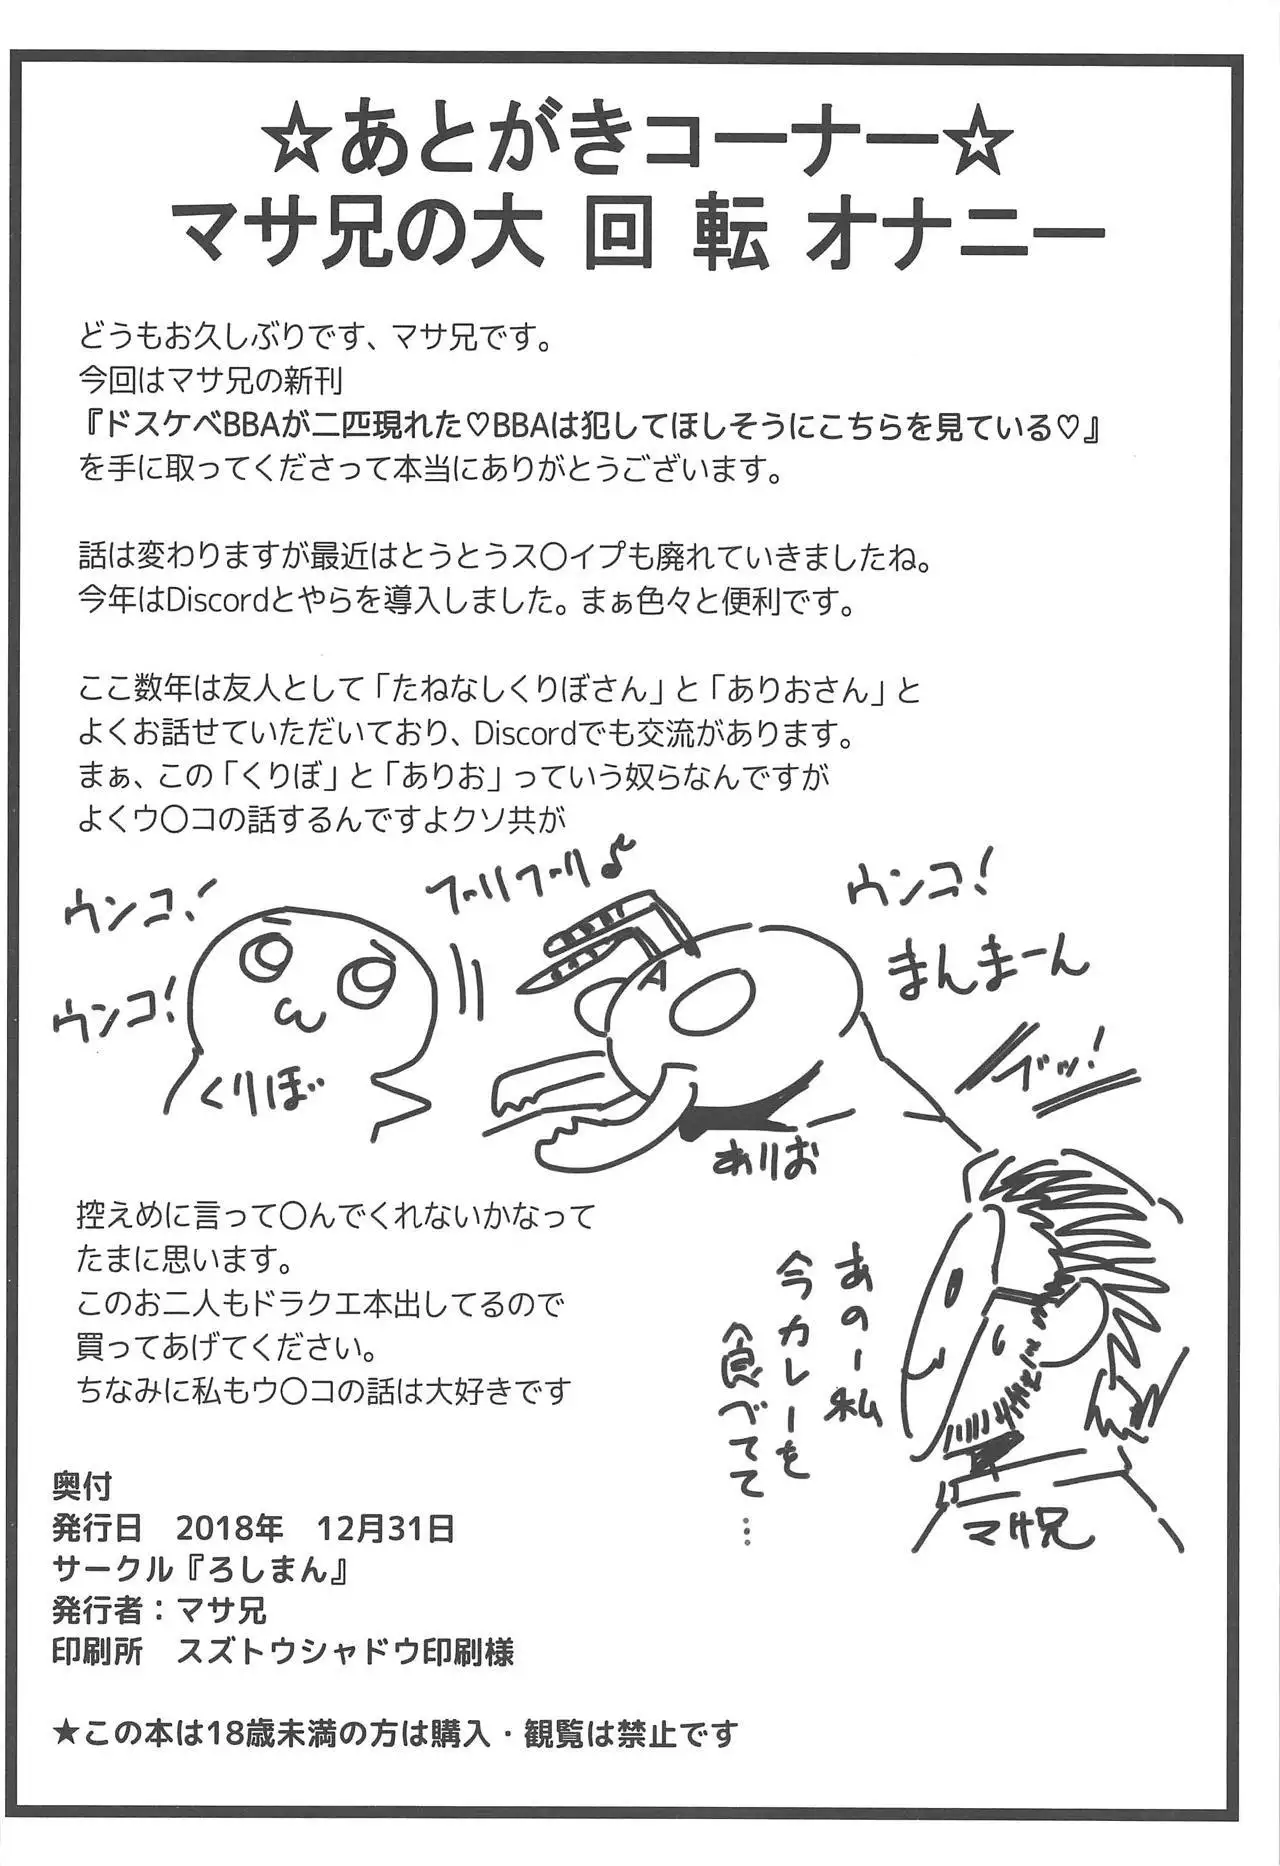 ☆あとがきコーナー☆
マサ兄の大 回 転 オナニー
どうもお久しぶりです、マサ兄です。
今回はマサ兄の新刊
『ドスケベBBAが二匹現れた♡BBAは犯してほしそうにこちらを見ている♡』
を手に取ってくださって本当にありがとうございます。
話は変わりますが最近はとうとうス〇イプも廃れていきましたね。
今年はDiscordとやらを導入しました。まぁ色々と便利です。
ここ数年は友人として「たねなしくりぼさん」と「ありおさん」と
よくお話せていただいており、Discordでも交流があります。
まぁ、この「くりぼ」と「ありお」っていう奴らなんですが
よくウ〇コの話するんですよクソ共が
ウンコ!
ウンコ!
くりぼ
フリフリ♪
ウンコ!
まんまーん
ブッ!
ありお
あのー私
今カレーを
食べてて…
マサ兄
控えめに言って〇んでくれないかなって
たまに思います。
このお二人もドラクエ本出してるので
買ってあげてください。
ちなみに私もウ〇コの話は大好きです
奥付
発行日　2018年　12月31日
サークル『ろしまん』
発行者：マサ兄
印刷所　スズトウシャドウ印刷様
★この本は18歳未満の方は購入・観覧は禁止です